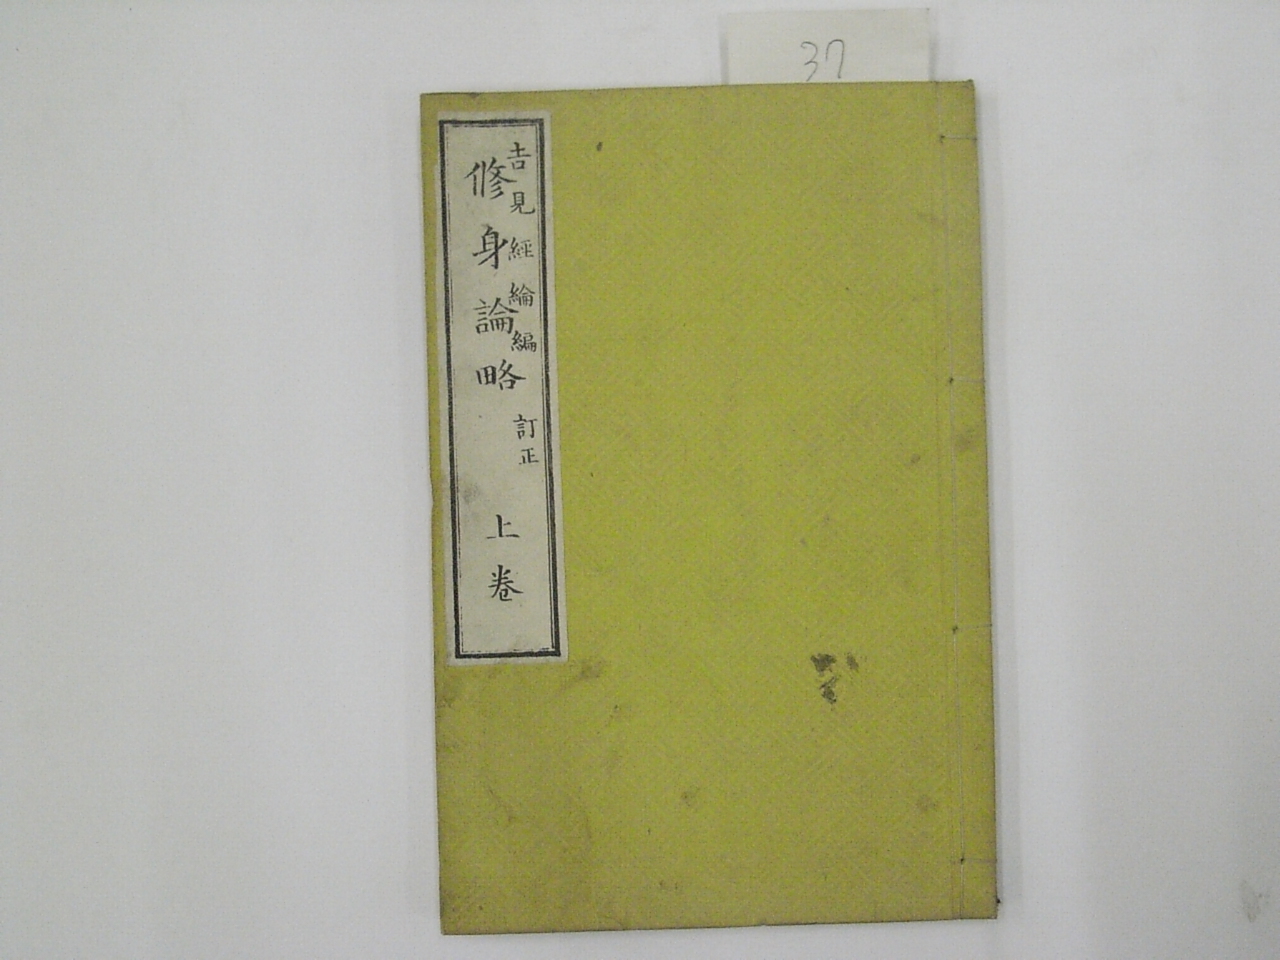 37
𠮷見經綸編
修身論略 訂正 上卷